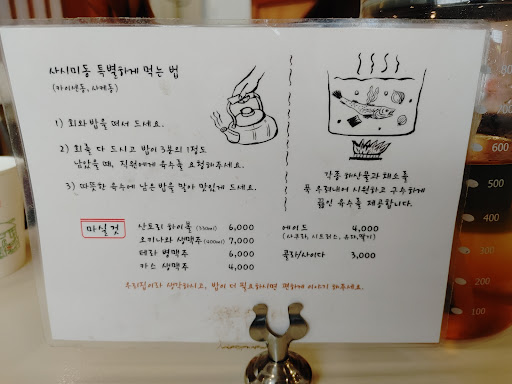 사시미동 특별하게 먹는 법
(카이센동, 사케동)
1) 회와 밥을 떠서 드세요.
2) 회를 다 드시고 밥이 3분의 1정도
남았을 때, 직원에게 육수를 요청해주세요.
3) 따뜻한 육수에 남은 밥을 말아 맛있게 드세요.
각종 해산물과 채소를
푹 우려내어 시원하고 구수하게
끓인 육수를 제공합니다.
마실 것
산토리 하이볼 (330ml) 6,000
오키나와 생맥주 (400ml) 7,000
테라 병맥주 6,000
카스 생맥주 4,000
에이드 4,000
(사쿠라, 시트러스, 유자, 딸기)
콜라/사이다 3,000
우리집이라 생각하시고, 밥이 더 필요하시면 편하게 이야기 해주세요.
600
500
400
300
200